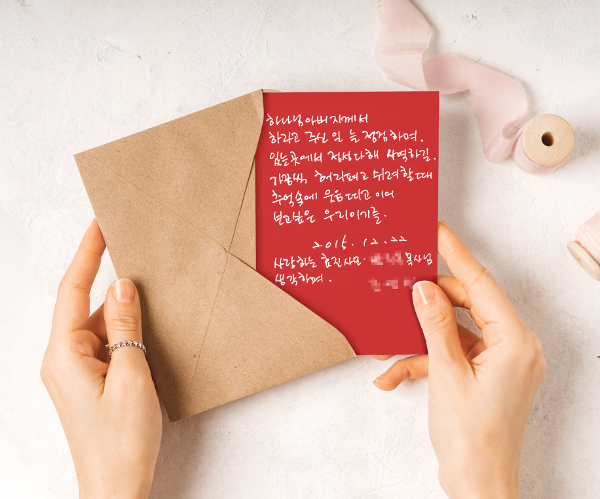 하나님아버지께서
하라고 주신 일 늘 점검하며,
있는곳에서 정성다해 사역하길.
가끔씩 허리펴고 쉬려할때
추억속에 웃음띠고 이어
보고싶은 우리이기를.
2015. 12. 22
사랑하는 효진사모. 목사님
생각하며.